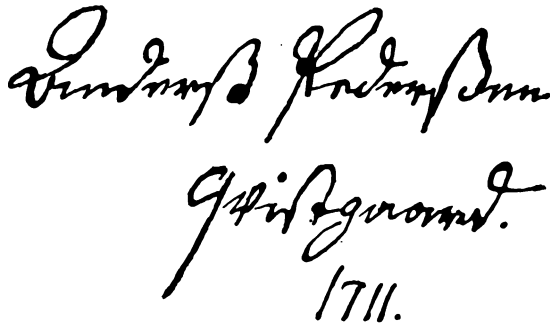 Anderß Pederßen
Qvistgaard.
1711.